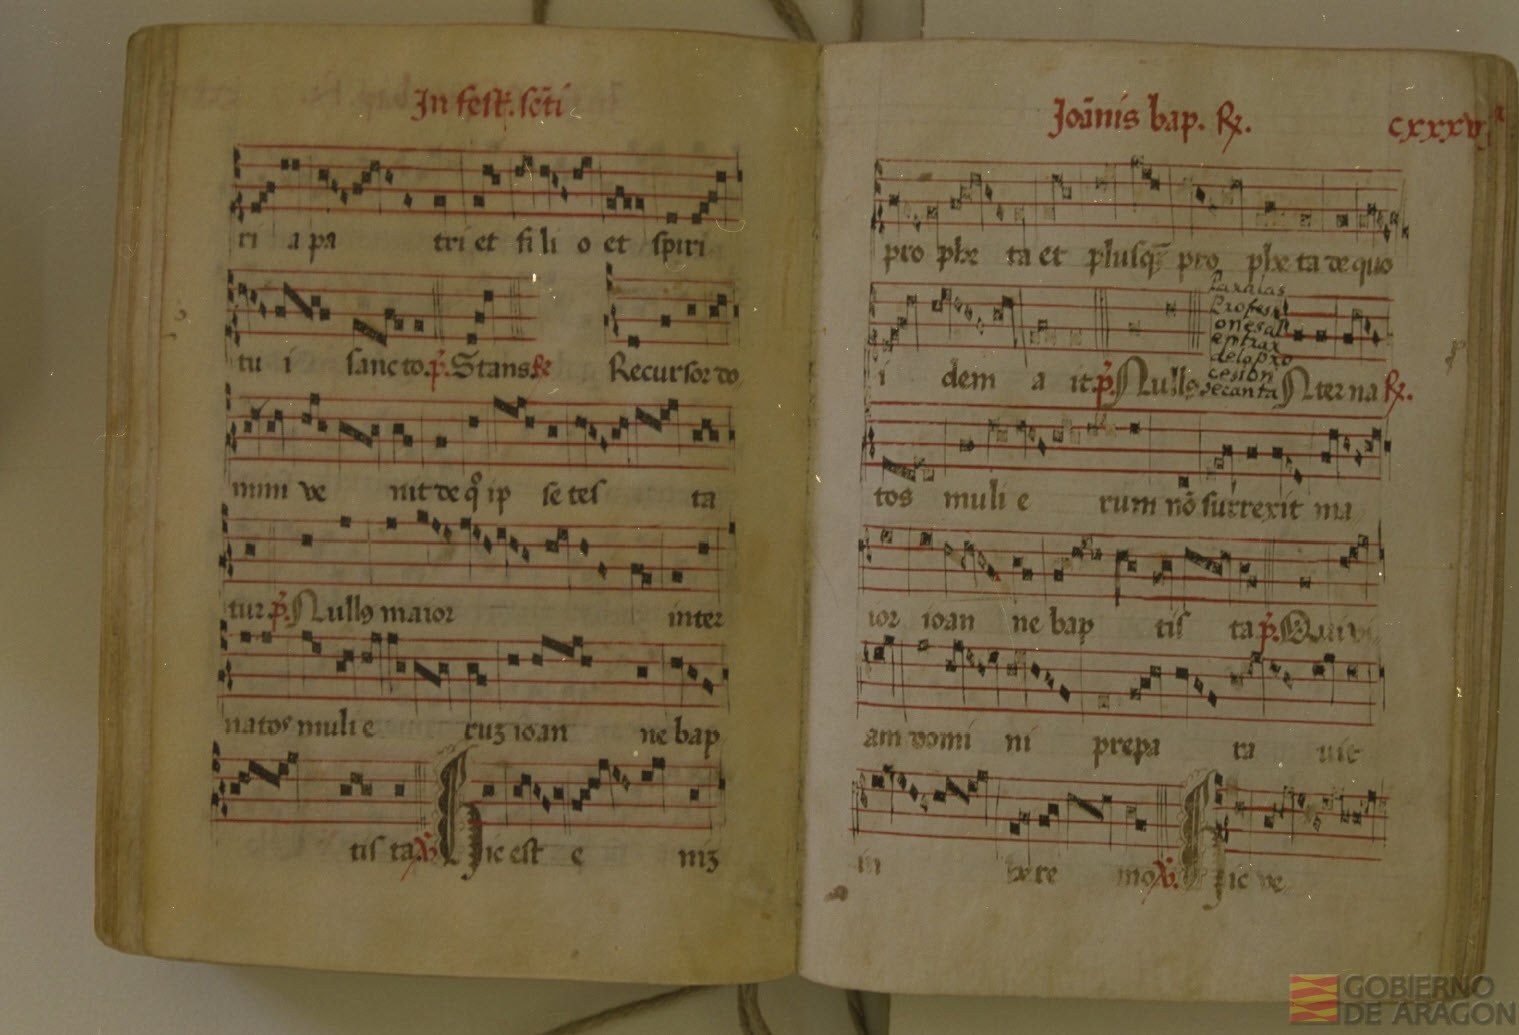 In fest. sc̄ti
ri a pa tri et fi li o et spiri
tu i sancto. p̄. Stans R̄
Recursor do
mini ve nit de q̊ ip se tes ta
tur. p̄. Nullꝯ maior inter
natos muli e ruꝫ ioan ne bap
tis ta. ℣. Hic est e niꝫ
Joān̄is bap. ℟. cxxxvj
pro phe ta et plusq̄ꝫ pro phe ta de quo
i dem a it. p̄. Nullꝯ
Para las
Profesi
ones al
entrar
de la pro
cesion
se canta
Nter na ℟.
tos muli e rum nō surrexit ma
ior ioan ne bap tis ta p̄. Qui vi
am domi ni prepa ra vit
in here mo ℣. Hic ve
GOBIERNO
DE ARAGON